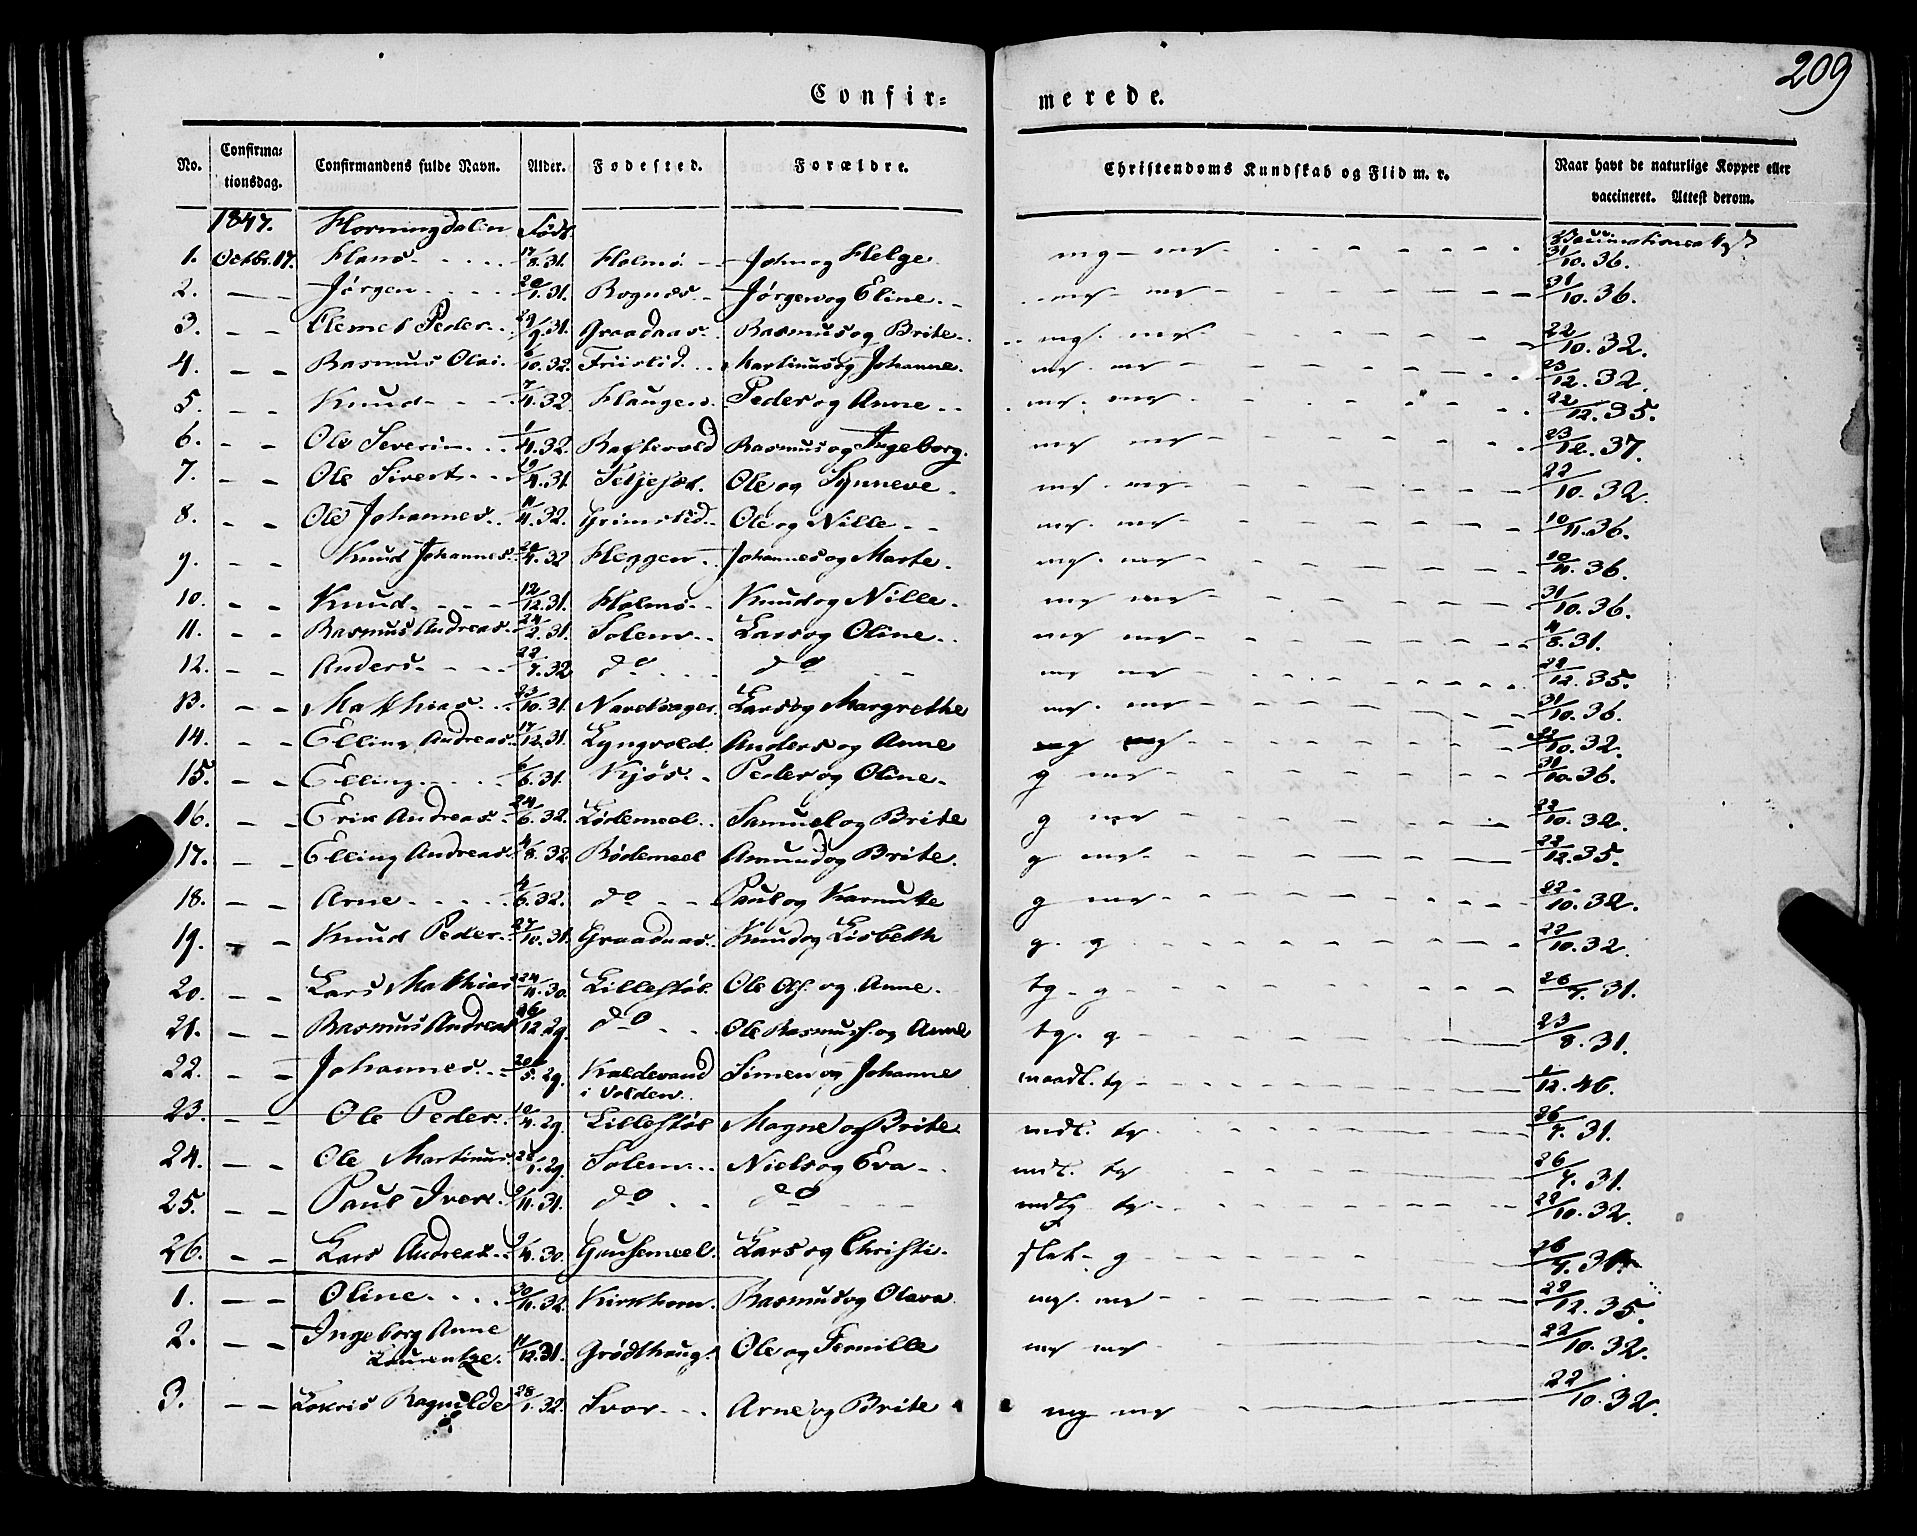 209
Confir= merede.
No. Confirma= tionsdag. Confirmandens fulde Navn. Alder. Fødested. Forældre. Christendoms Kundskab og Flid m. v. Naar havt de naturlige Kopper eller vaccineret. Attest derom.
1847. Horningdalen Født
1. Octbr. 17. Hans - - - 17/8.31. Holmø - - John og Helge mg - mg - - - - 31/10.36.
2. - - Jørgen - - - 20/1.31. Rognæs - Jørgen og Eline - mg - mg - - - - 31/10.36.
3. - - Clemet Peder - 29/9.31. Graadaas - Rasmus og Brite - mg. mg - - - - 22/10.32.
4. - - Rasmus Olai. /10.32. Friislid - - Martinus og Johanne. mg. mg - - - - 23/12.32.
5. - - Knud - - - 7/4.32. Haugen - Peder og Anne - - mg. mg - - - - 22/12.35.
6. - - Ole Severin - - 1/4.32. Raftevold Rasmus og Ingeborg. mg mg - - - - 23/12.37.
7. - - Ole Sivert - - 19/4.31. Ole og Synneve - mg. mg - - - - 22/10.32.
8. - - Ole Johannes - 11/4.32. Grimslid - Ole og Nille - - mg. mg - - - - 10/11.36.
9. - - Knud Johannes - 20/4.32 Heggen - Johannes og Marte. mg. mg - - - - 10/11.36.
10. - - Knud - - - 12/12.31. Holmø - - Knud og Nille - mg mg - - - - 31/10.36.
11. - - Rasmus Andreas - 24/2.31. Solem - - Lars og Oline - - mg mg - - - - 4/8.31.
12. - - Anders - - - 22/7.32 do - - - do - - mg mg - - - - 22/12.35.
13. - - Matthias - - 23/10.31. Lars og Margrethe mg. mg - - - - 31/10.36.
14. - - Elling Andreas - 17/12.31. Lyngvold. Anders og Anne mg mg - - - - 22/10.32.
15. - - Elling - - - /6.31. Kjøs - - Peder og Oline - g mg - - - - 31/10.36.
16. - - Erik Andreas - 24/6.32. Lødemeel - Samuel og Brite g mg - - - - 22/10.32.
17. - - Elling Andreas - 4/8.32. Rødemeel Amund og Brite. g mg - - - - 22/12.35.
18. - - Arne - - - 4/6.32. do - - Paul og g mg - - - - 22/10.32.
19. - - Knud Peder - 27/10.31. Graadaas. Knud og Lisbeth g. g - - - - 22/10.32.
20. - - Lars Matthias 24/11.30. Lillestøl. Ole Ols. og Anne. tg - g - - - - 26/7.31.
21. - - Rasmus Andreas 26/12.29. do - - Ole Rasmus. og Anne tg. g - - - - 23/8.31.
22. - - Johannes - - 20/5.29. Kaldevand i Volden. Simen og Johanne maadl. tg - - - - 1/12.46.
23. - - Ole Peder - 10/4.29. Lillestøl Magne og Brite. mdl. tg - - - - 26/7.31.
24. - - Ole Martinus. /1.29. Solem - - Niels og Eva - - mdl. tg - - - - 26/7.31.
25. - - Paul Iver. 9/11.31. do - - do - - mdlg tg - - - - 22/10.32.
26. - - Lars Andreas - 9/4.30. Gausemeel. Lars og Christi - slet - g - - - - 26/7.31.
1. - - Oline - - - 30/11.32. Kirkhorn. Rasmus og Olava mg. mg - - - - 22/12.35.
2. - - Ingeborg Anne Laurentze. 11/12.31. Grødthaug. Ole og Pernille mg mg - - - - 22/10.32.
3. - - Ragnilde 28/1.32. Svor - - Arne og Brite mg mg - - - - 22/10.32.